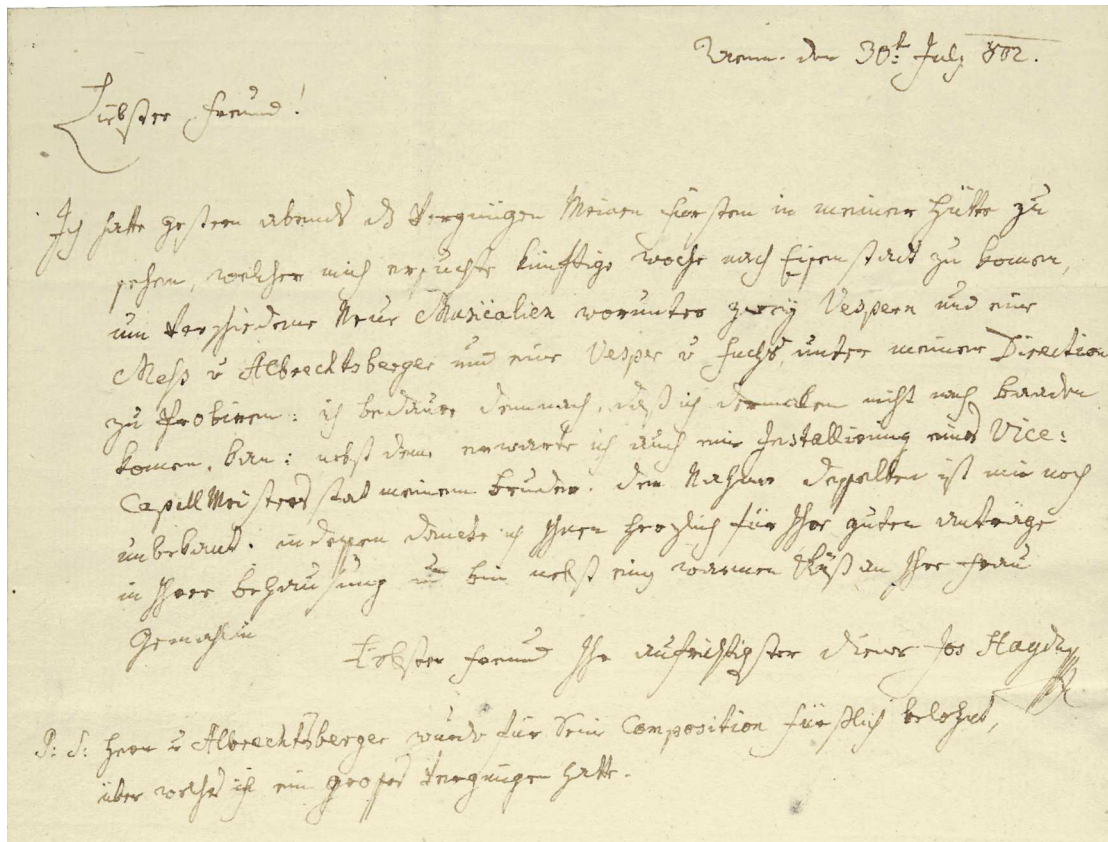 Wienn. den 30t July 802.
Liebster Freund!
Ich hatte gestern abends ds Vergnügen Meinen Fürsten in meiner Hütte zu
sehen, welcher mich ersuchte künftige woche nach Eisenstadt zu komen,
um Verschiedene Neue Musicalien worunter zwey Vespern und eine
Mess v Albrechtsberger und eine Vesper v Fuchs unter meiner Direction
zu Probiren: ich bedaure demnach, daß ich dermalen nicht nach Baaden
komen kan: nebst dem erwarte ich auch eine Installirung eines Vice:
CapellMeisters stat meinem bruder. der Nahme desselben ist mir noch
unbekant. indessen dancke ich Ihnen herzlich für Ihre guten anträge
in Ihrer behausung und bin nebst einem warmen Kuß an Ihre Frau
Gemahlin
Liebster Freund Ihr aufrichtigster diener Jos Haydn
P: S: Herr v Albrechtsberger wurde für Seine Composition fürstlich belohnt,
über welches ich ein großes Vergnügen hatte.